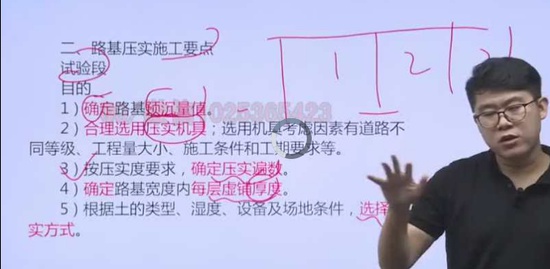 二、路基压实施工要点
试验段
目的
1）确定路基预沉量值。
2）合理选用压实机具；选用机具考虑因素有道路不
同等级、工程量大小、施工条件和工期要求等。
3）按压实度要求，确定压实遍数。
4）确定路基宽度内每层虚铺厚度。
5）根据土的类型、湿度、设备及场地条件，选择
实方式。
1 2 3